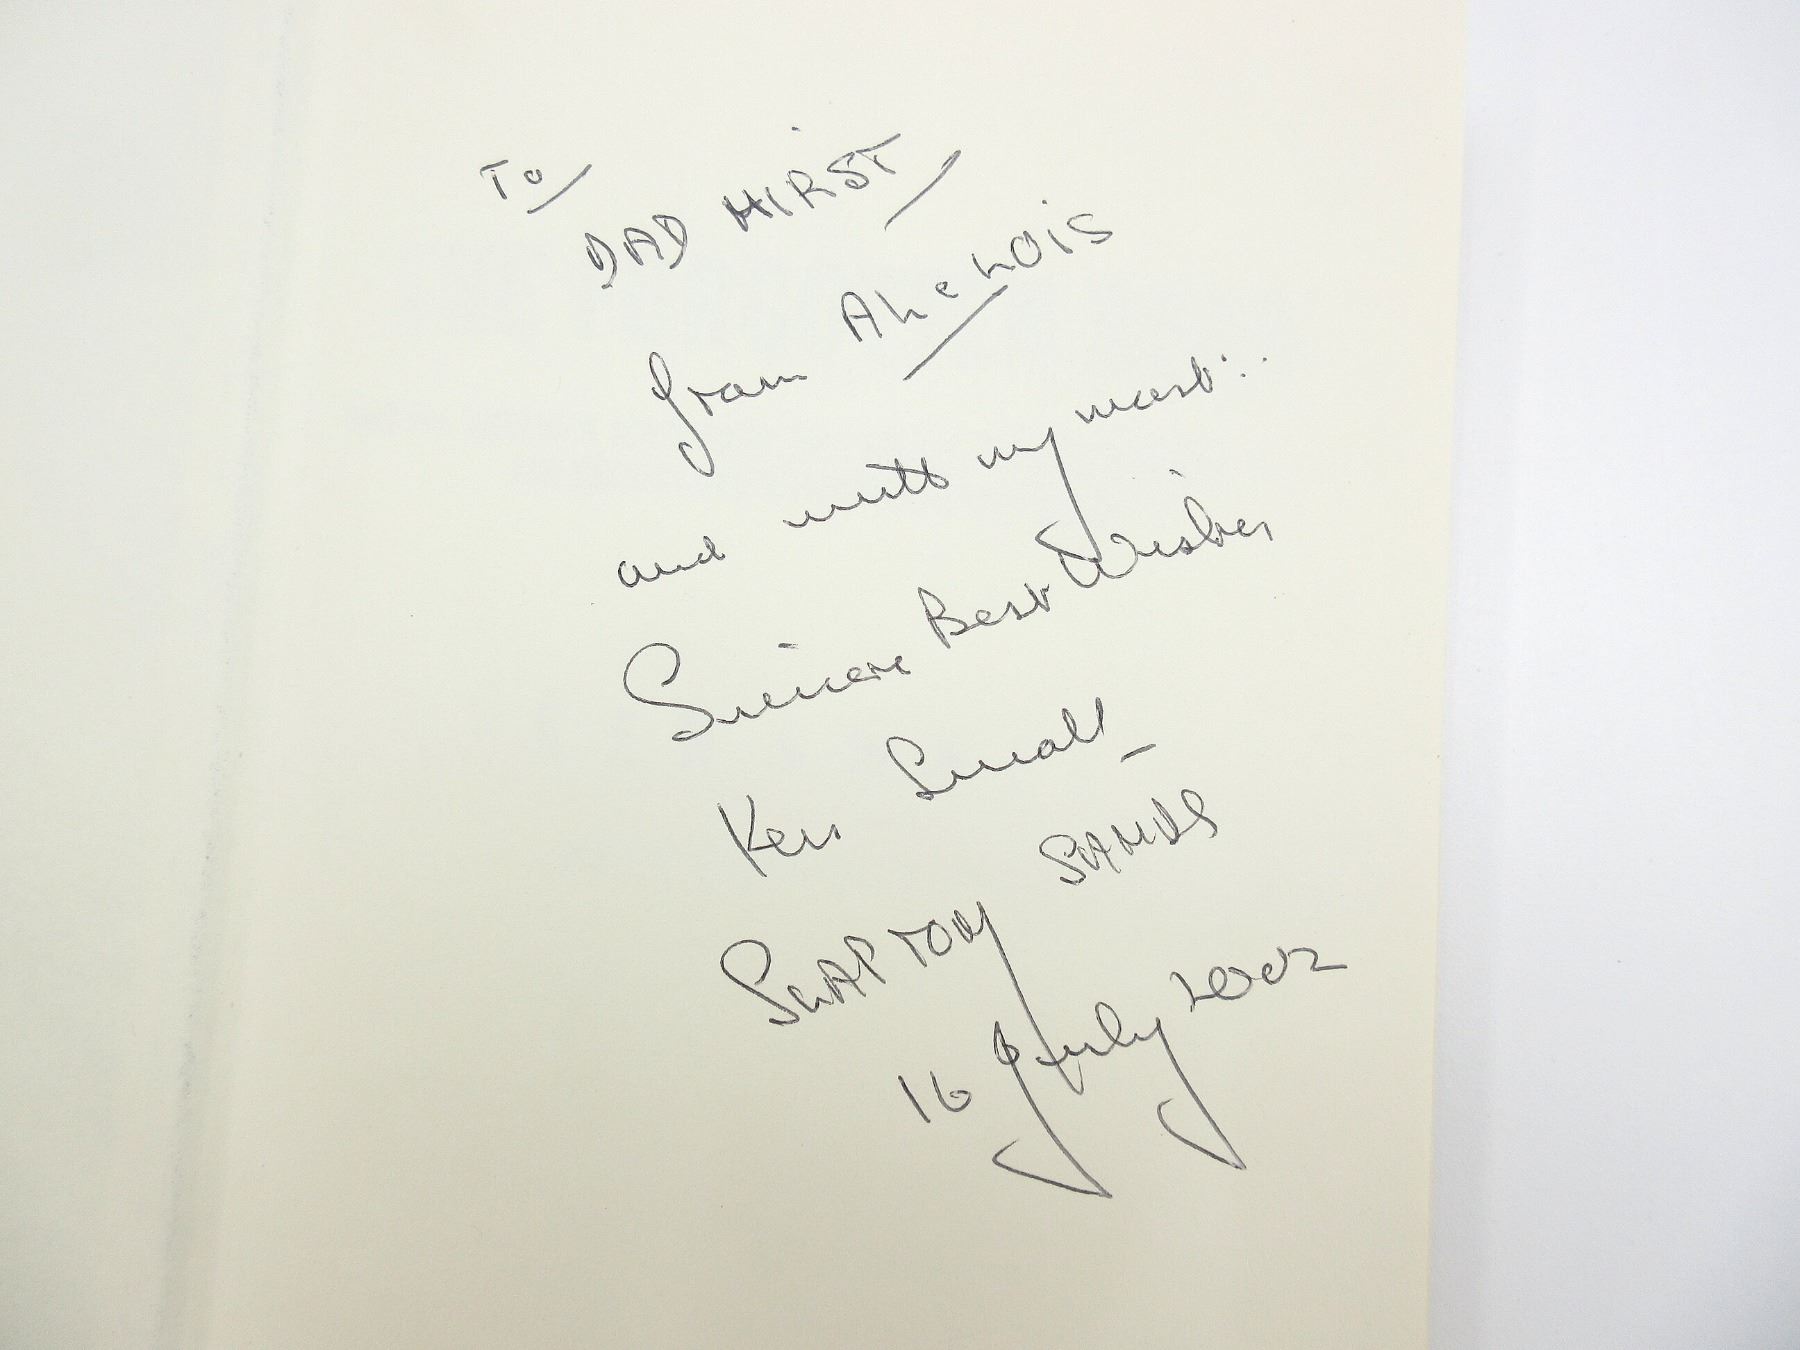 To
DAD HIRST
from AL & LOIS
and with my most
Sincere Best Wishes
Ken Small
SLAPTON SANDS
16 July 2002